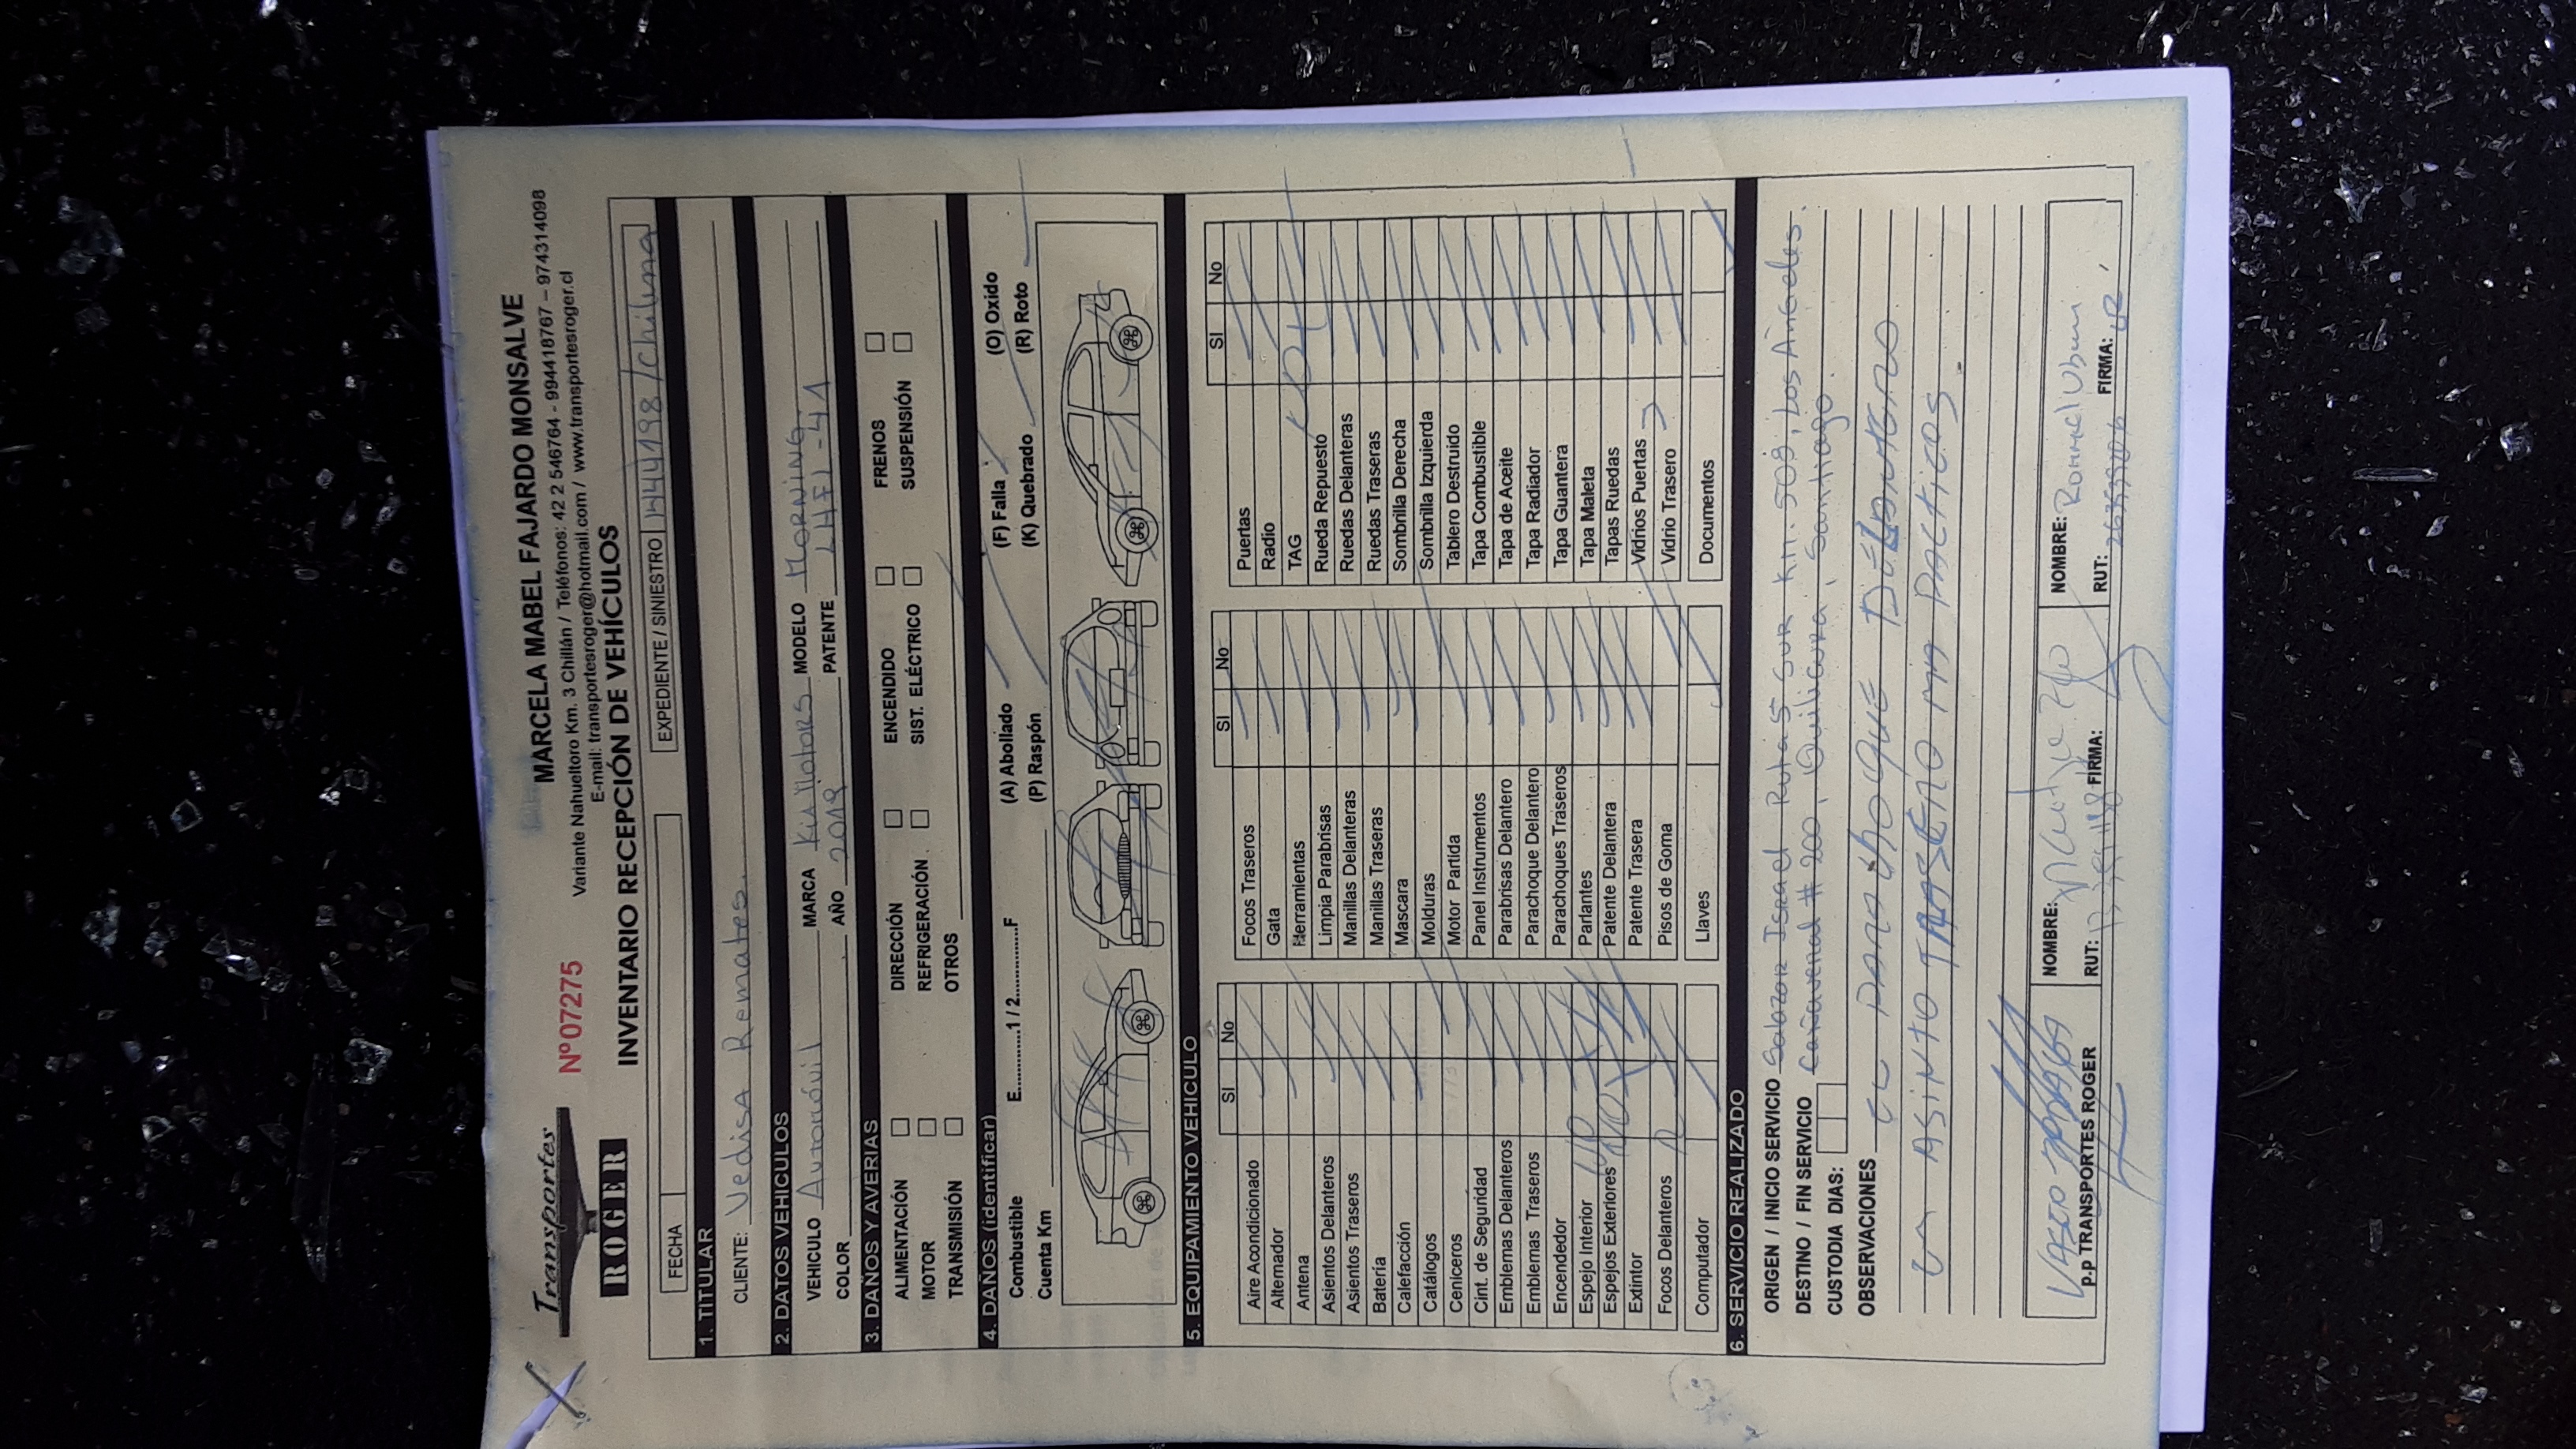 Transportes
ROGER
Nº 07275
MARCELA MABEL FAJARDO MONSALVE
Variante Nahueltoro Km. 3 Chillán / Teléfonos: 42 2 546764 - 994418767 – 974314098
E-mail: transportesroger@hotmail.com / www.transportesroger.cl
INVENTARIO RECEPCIÓN DE VEHÍCULOS
FECHA
EXPEDIENTE / SINIESTRO 1444198 / Chilina
1. TITULAR
CLIENTE: Vedisa Remates.
2. DATOS VEHICULOS
VEHICULO Automóvil MARCA Kia Motors MODELO MORNING
COLOR AÑO 2019 PATENTE
3. DAÑOS Y AVERIAS
ALIMENTACIÓN DIRECCIÓN ENCENDIDO FRENOS
MOTOR REFRIGERACIÓN SIST. ELÉCTRICO SUSPENSIÓN
TRANSMISIÓN OTROS
4. DAÑOS (identificar)
Combustible E.............1 / 2.............F (A) Abollado (F) Falla (O) Oxido
Cuenta Km (P) Raspón (K) Quebrado (R) Roto
5. EQUIPAMIENTO VEHICULO
SI No SI No SI No
Aire Acondicionado Focos Traseros Puertas
Alternador Gata Radio
Antena Herramientas TAG
Asientos Delanteros Limpia Parabrisas Rueda Repuesto
Asientos Traseros Manillas Delanteras Ruedas Delanteras
Batería Manillas Traseras Ruedas Traseras
Calefacción Mascara Sombrilla Derecha
Catálogos Molduras Sombrilla Izquierda
Ceniceros Motor Partida Tablero Destruido
Cint. de Seguridad Panel Instrumentos Tapa Combustible
Emblemas Delanteros Parabrisas Delantero Tapa de Aceite
Emblemas Traseros Parachoque Delantero Tapa Radiador
Encendedor Parachoques Traseros Tapa Guantera
Espejo Interior Parlantes Tapa Maleta
Espejos Exteriores Patente Delantera Tapas Ruedas
Extintor Patente Trasera Vidrios Puertas
Focos Delanteros Pisos de Goma Vidrio Trasero
Computador Llaves Documentos
6. SERVICIO REALIZADO
ORIGEN / INICIO SERVICIO Salazar Israel Ruta 5 Sur Km. 508, Los Angeles.
DESTINO / FIN SERVICIO Cañaveral # 200, Quilicura, Santiago.
CUSTODIA DIAS:
OBSERVACIONES EL PARACHOQUE DELANTERO
ASINTO TRASERO
P.P TRANSPORTES ROGER
NOMBRE:
RUT: FIRMA:
NOMBRE: Rommel
RUT: FIRMA: